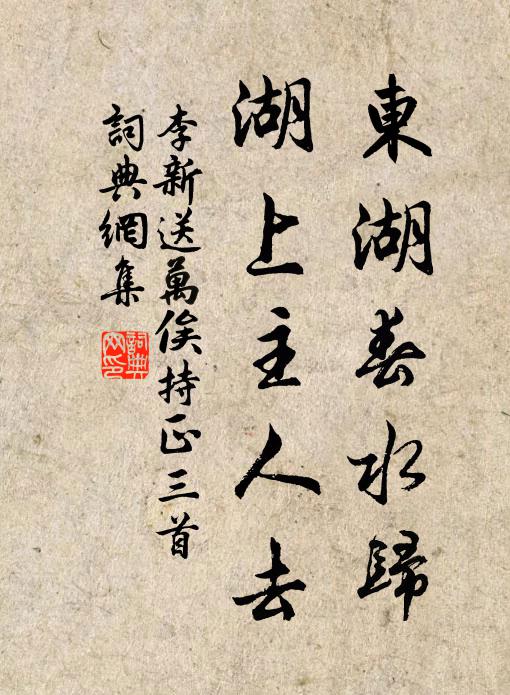 東湖春水歸
湖上主人去
李新送萬俟持正三首
詞典網集
詞典網印